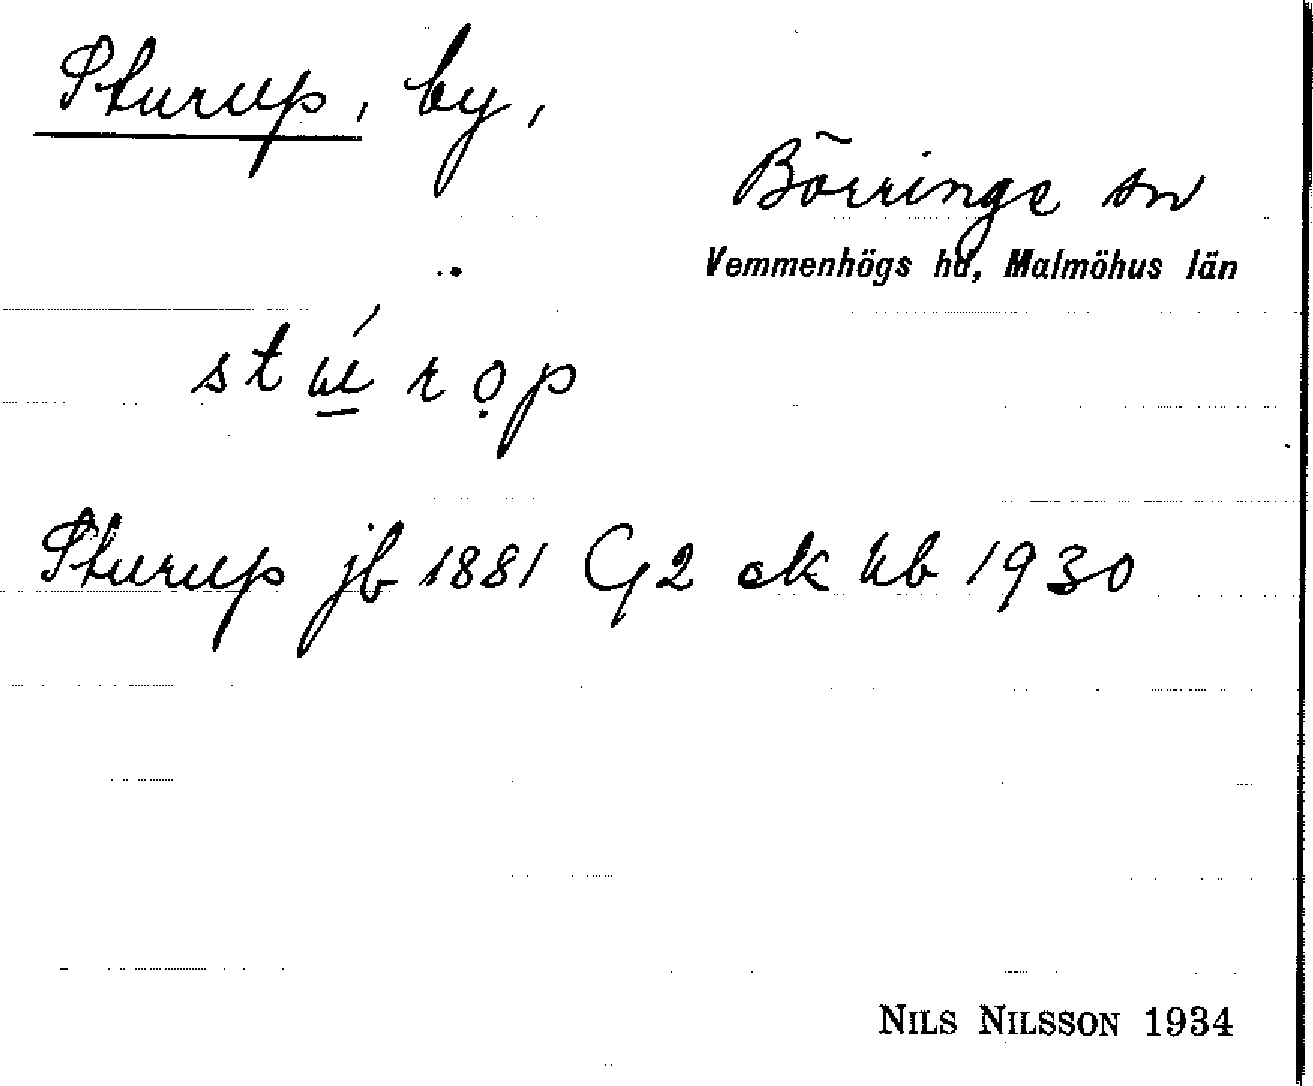 Sturup, by,
Börringe sn
Vemmenhögs hd, Malmöhus län
stú̲rọp
Sturup jb 1881 G2 ek kb 1930
NILS NILSSON 1934